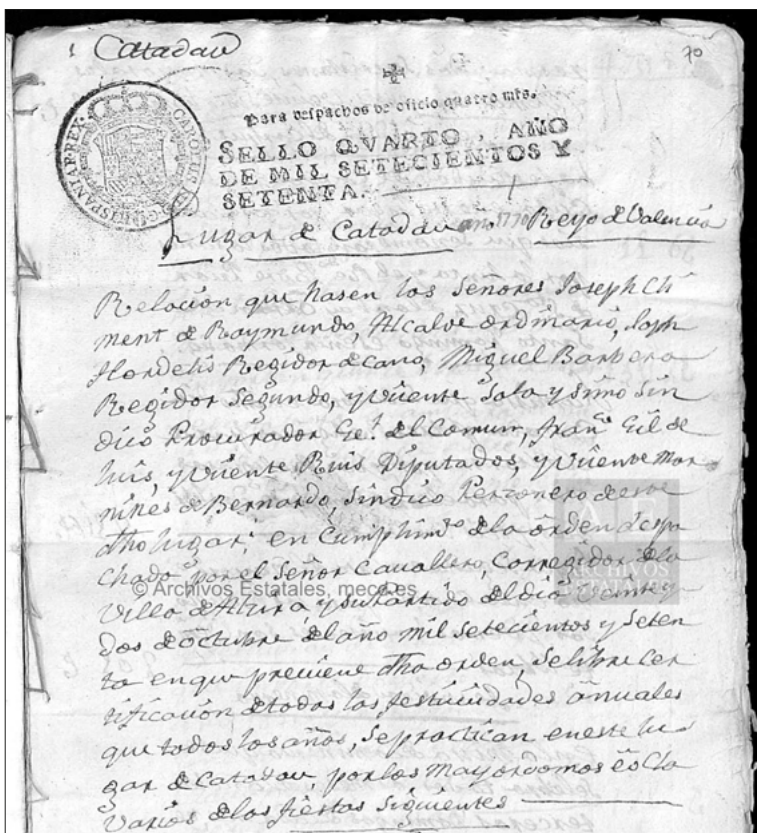 1 Catadau
70
Para despachos de oficio quatro mrs.
SELLO QVARTO, AÑO
DE MIL SETECIENTOS Y
SETENTA.
HISPANIAR.REX. CAROLUS III D.G.
Lugar de Catadau año 1770 Reyo de Valencia
Relacion que hasen los Señores Joseph Cli
ment de Raymundo, Alcalde ordinario, Joseph
Regidor decano, Miguel Barbera
Regidor Segundo, y Visente Sala y Simo Sin
dico Procurador Gel. del Comun, Franco. Gil de
Luis, y Visente Ruis Diputados, y Visente Mar
tines de Bernardo, Sindico Perzonero de este
dho lugar; en Cumplimto. de la orden despa
chada por el Señor Cavallero, Corregidor de la
Villa de Alsira, y su Partido del dia Veinte y
dos de octubre del año mil setecientos y seten
ta en que previene dha orden, se libre cer
tificacion de todas las festividades anuales
que todos los años, se practican en este lu
gar de Catadau, por los Mayordomos ô Cla
varios de las fiestas Siguientes
© Archivos Estatales, mecd.es
ARCHIVOS
ESTATALES